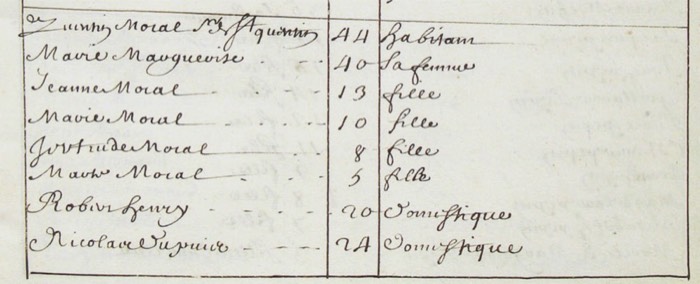 Quintin Moral Sr de St quentin 44 habitant
Marie Marguerite 40 Sa femme
Jeanne Moral 13 fille
Marie Moral 10 fille
Jertrude Moral 8 fille
Marte Moral 5 fille
Robert henry 20 domestique
Nicolas dupuis 24 domestique